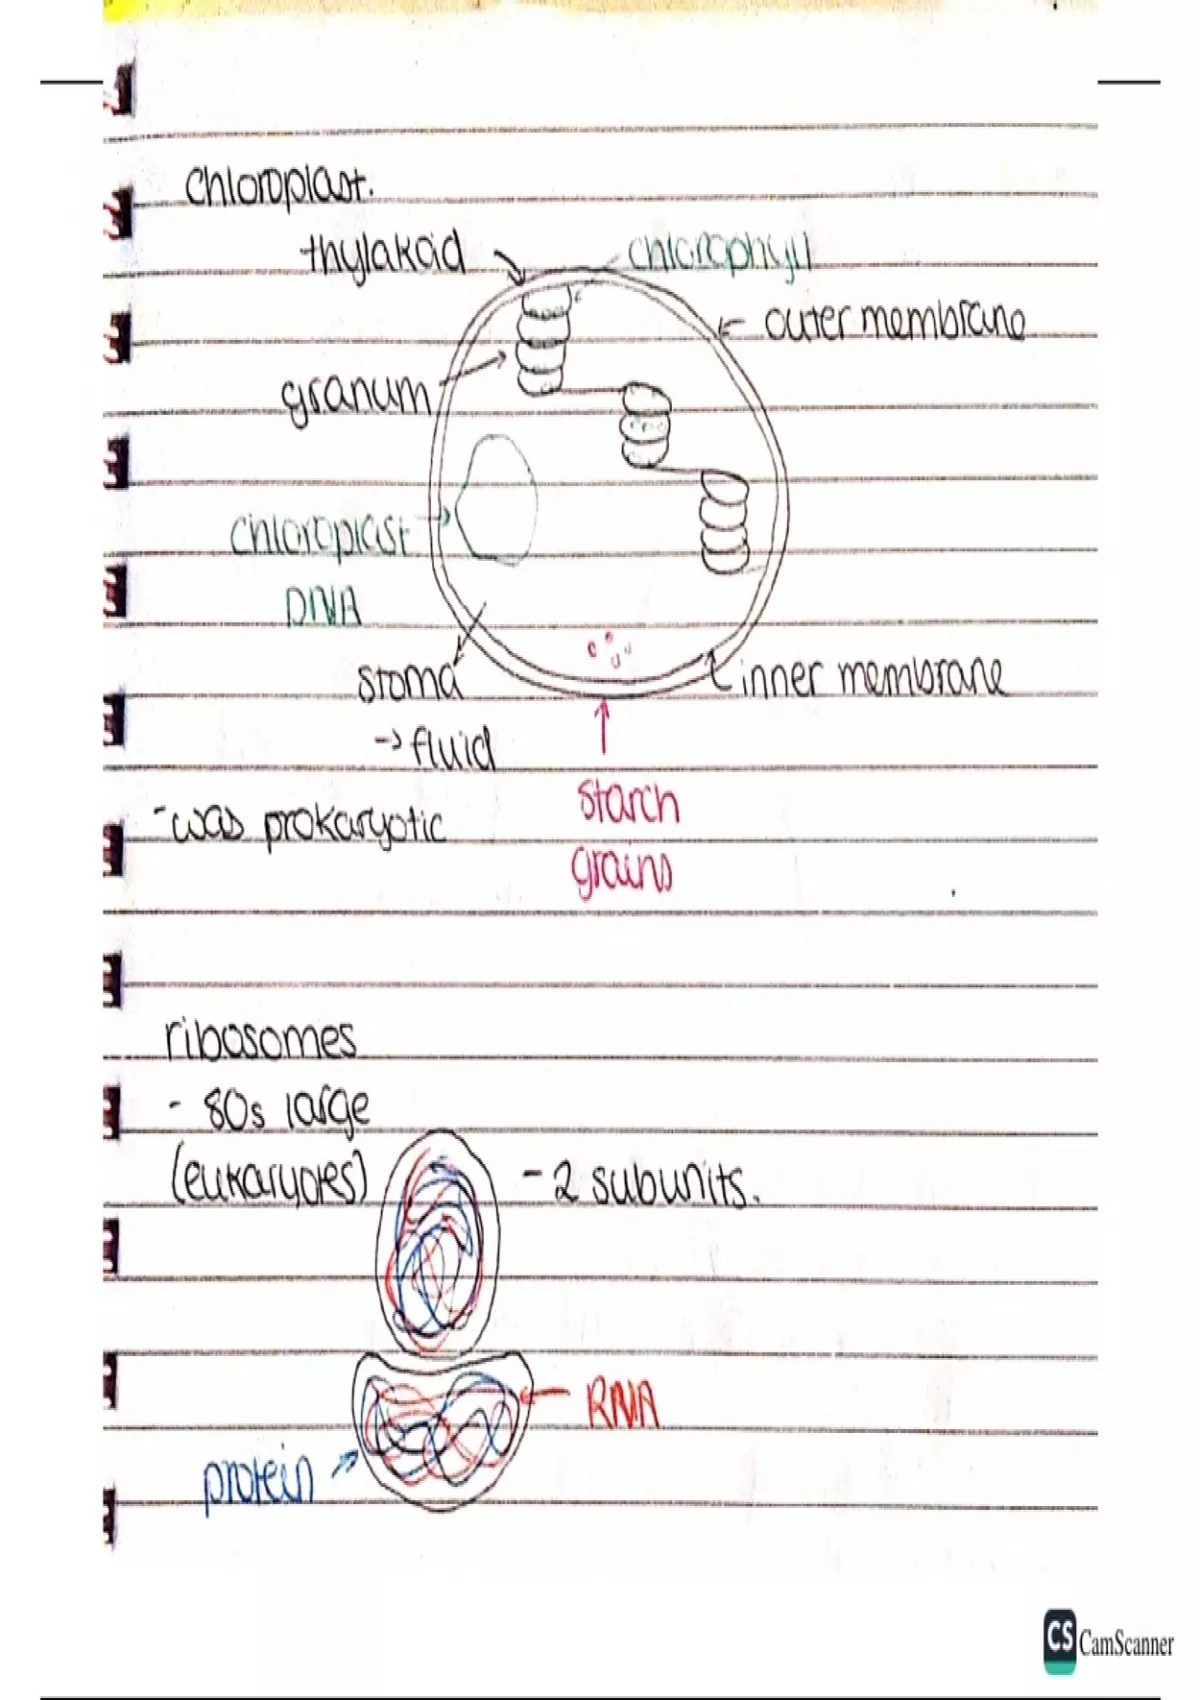 Chloroplast.
thylakoid
chlorophyll
outer membrane
granum
chloroplast
DNA
stoma
inner membrane
-> fluid
starch
grains
- was prokaryotic
ribosomes
- 80s large
(eukaryotes)
- 2 subunits.
RNA
protein
CS CamScanner